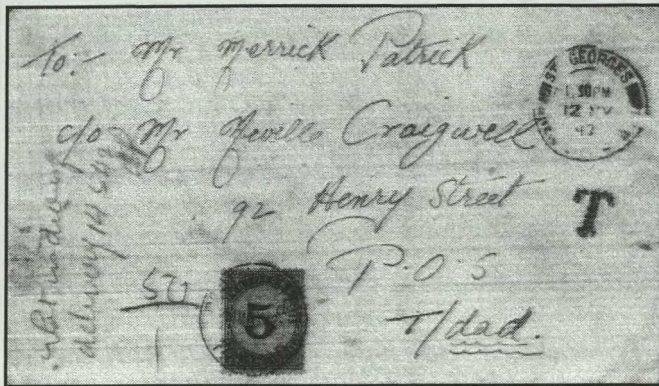 To:- Mr Merrick Patrick
c/o Mr Neville Craigwell
92 Henry Street
P.O.S
T/dad.
ST GEORGES
1.30PM
12 NV
47
T
5
delivery 14